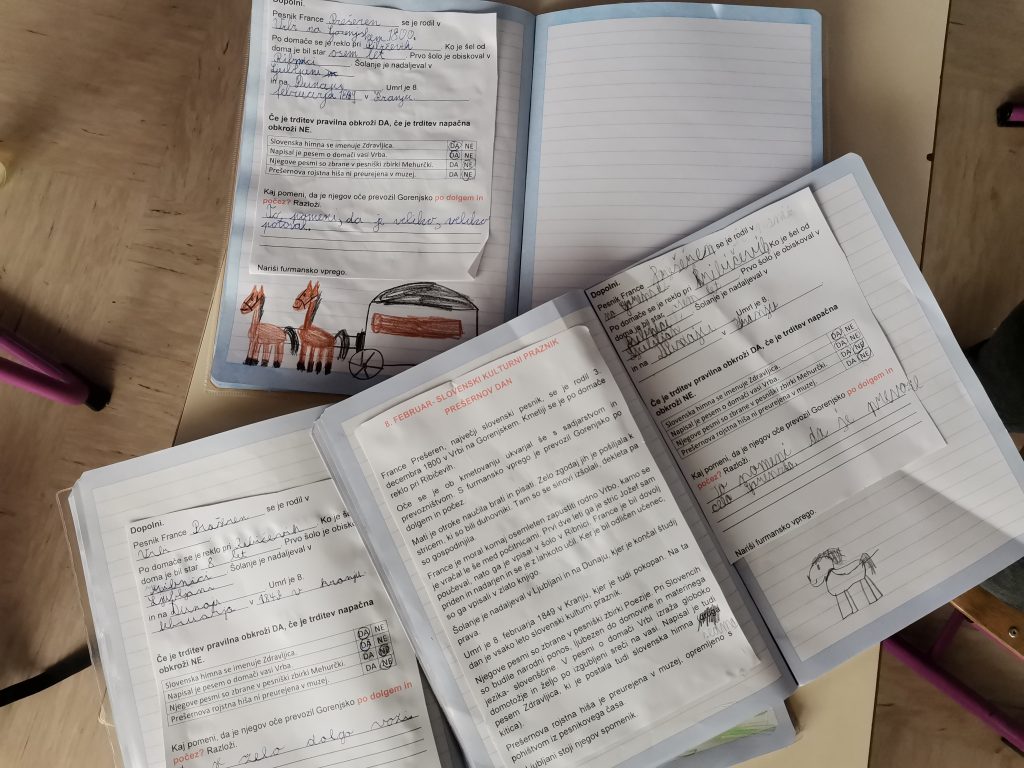 Dopolni.
Pesnik France Prešeren se je rodil v
Vrbi na Gorenjskem 1800.
Po domače se je reklo pri Ko je šel od
doma je bil star osem let Prvo šolo je obiskoval v
Ribnici Šolanje je nadaljeval v
Ljubljani
in na Dunaju Umrl je 8.
februarja 1849 v Kranju
Če je trditev pravilna obkroži DA, če je trditev napačna
obkroži NE.
Slovenska himna se imenuje Zdravljica. DA NE
Napisal je pesem o domači vasi Vrba. DA NE
Njegove pesmi so zbrane v pesniški zbirki Mehurčki. DA NE
Prešernova rojstna hiša ni preurejena v muzej. DA NE
Kaj pomeni, da je njegov oče prevozil Gorenjsko po dolgem in
počez? Razloži.
To pomeni, da je veliko, veliko
potoval.
Nariši furmansko vprego.
Dopolni.
Pesnik France Prešeren se je rodil v
Po domače se je reklo pri Ko je šel od
doma je bil star Prvo šolo je obiskoval v
Šolanje je nadaljeval v
in na Dunaju Umrl je 8.
v Kranju
Če je trditev pravilna obkroži DA, če je trditev napačna
obkroži NE.
Slovenska himna se imenuje Zdravljica. DA NE
Napisal je pesem o domači vasi Vrba. DA NE
Njegove pesmi so zbrane v pesniški zbirki Mehurčki. DA NE
Prešernova rojstna hiša ni preurejena v muzej. DA NE
Kaj pomeni, da je njegov oče prevozil Gorenjsko po dolgem in
počez? Razloži.
da je
Nariši furmansko vprego.
8. FEBRUAR- SLOVENSKI KULTURNI PRAZNIK
PREŠERNOV DAN
France Prešeren, največji slovenski pesnik, se je rodil 3.
decembra 1800 v Vrbi na Gorenjskem. Kmetiji se je po domače
reklo pri Ribičevih.
Oče se je ob kmetovanju ukvarjal še s sadjarstvom in
prevozništvom. S furmansko vprego je prevozil Gorenjsko po
dolgem in počez
Mati je otroke naučila brati in pisati. Zelo zgodaj jih je pošiljala k
stricem, ki so bili duhovniki. Tam so se sinovi izšolali, dekleta pa
so gospodinjila
France je moral komaj osemleten zapustiti rodno Vrbo, kamor se
je vračal le še med počitnicami. Prvi dve leti ga je stric Jožef sam
poučeval, nato ga je vpisal v šolo v Ribnici. France je bil dovolj
priden in nadarjen in se je z lahkoto učil. Ker je bil odličen učenec,
so ga vpisali v zlato knjigo.
Šolanje je nadaljeval v Ljubljani in na Dunaju, kjer je končal študij
prava.
Umrl je 8. februarja 1849 v Kranju, kjer je tudi pokopan. Na ta
dan je vsako leto slovenski kulturni praznik.
Njegove pesmi so zbrane v pesniški zbirki Poezije. Pri Slovencih
so budile narodni ponos, ljubezen do domovine in maternega
jezika- slovenščine. V pesmi o domači Vrbi izraža globoko
domotožje in željo po izgubljeni sreči na vasi. Napisal je tudi
pesem Zdravljica, ki je postala tudi slovenska himna
kitica)
Prešernova rojstna hiša je preurejena v muzej, opremljeno s
pohištvom iz pesnikovega časa
Ljubljani stoji njegov spomenik
Dopolni.
Pesnik France Prešeren se je rodil v
Vrbi
Po domače se je reklo pri Ko je še
doma je bil star 8 let Prvo šolo je obisko
Šolanje je nadaljeval v
Ljubljani
in na Dunaju Umrl je 8.
februarja v Kranju
Če je trditev pravilna obkroži DA, če je trditev napačna
obkroži NE.
Slovenska himna se imenuje Zdravljica. DA NE
Napisal je pesem o domači vasi Vrba. DA NE
Njegove pesmi so zbrane v pesniški zbirki Mehurčki. DA NE
Prešernova rojstna hiša ni preurejena v muzej. DA NE
Kaj pomeni, da je njegov oče prevozil Gorenjsko po dolgem in
počez? Razloži.
zelo dolgo